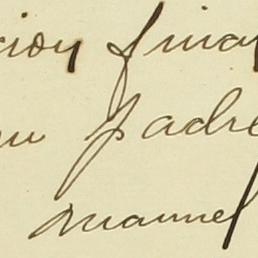 cion final
su padre
Manuel